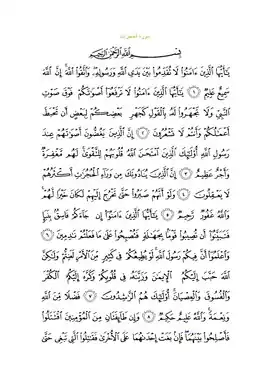 سورة الحجرات
بِسْمِ اللَّهِ الرَّحْمَٰنِ الرَّحِيمِ
يَٰٓأَيُّهَا الَّذِينَ ءَامَنُوا لَا تُقَدِّمُوا بَيْنَ يَدَيِ اللَّهِ وَرَسُولِهِ وَاتَّقُوا اللَّهَ إِنَّ اللَّهَ
سَمِيعٌ عَلِيمٌ ١ يَٰٓأَيُّهَا الَّذِينَ ءَامَنُوا لَا تَرْفَعُوٓا أَصْوَٰتَكُمْ فَوْقَ صَوْتِ
النَّبِيِّ وَلَا تَجْهَرُوا لَهُ بِالْقَوْلِ كَجَهْرِ بَعْضِكُمْ لِبَعْضٍ أَن تَحْبَطَ
أَعْمَٰلُكُمْ وَأَنتُمْ لَا تَشْعُرُونَ ٢ إِنَّ الَّذِينَ يَغُضُّونَ أَصْوَٰتَهُمْ عِندَ
رَسُولِ اللَّهِ أُولَٰٓئِكَ الَّذِينَ امْتَحَنَ اللَّهُ قُلُوبَهُمْ لِلتَّقْوَىٰ لَهُم مَّغْفِرَةٌ
وَأَجْرٌ عَظِيمٌ ٣ إِنَّ الَّذِينَ يُنَادُونَكَ مِن وَرَآءِ الْحُجُرَٰتِ أَكْثَرُهُمْ
لَا يَعْقِلُونَ ٤ وَلَوْ أَنَّهُمْ صَبَرُوا حَتَّىٰ تَخْرُجَ إِلَيْهِمْ لَكَانَ خَيْرًا لَّهُمْ
وَاللَّهُ غَفُورٌ رَّحِيمٌ ٥ يَٰٓأَيُّهَا الَّذِينَ ءَامَنُوٓا إِن جَآءَكُمْ فَاسِقٌ بِنَبَإٍ
فَتَبَيَّنُوٓا أَن تُصِيبُوا قَوْمًا بِجَهَٰلَةٍ فَتُصْبِحُوا عَلَىٰ مَا فَعَلْتُمْ نَٰدِمِينَ ٦
وَاعْلَمُوٓا أَنَّ فِيكُمْ رَسُولَ اللَّهِ لَوْ يُطِيعُكُمْ فِي كَثِيرٍ مِّنَ الْأَمْرِ لَعَنِتُّمْ وَلَٰكِنَّ
اللَّهَ حَبَّبَ إِلَيْكُمُ الْإِيمَٰنَ وَزَيَّنَهُ فِي قُلُوبِكُمْ وَكَرَّهَ إِلَيْكُمُ الْكُفْرَ
وَالْفُسُوقَ وَالْعِصْيَانَ أُولَٰٓئِكَ هُمُ الرَّٰشِدُونَ ٧ فَضْلًا مِّنَ اللَّهِ
وَنِعْمَةً وَاللَّهُ عَلِيمٌ حَكِيمٌ ٨ وَإِن طَآئِفَتَانِ مِنَ الْمُؤْمِنِينَ اقْتَتَلُوا
فَأَصْلِحُوا بَيْنَهُمَا فَإِن بَغَتْ إِحْدَىٰهُمَا عَلَى الْأُخْرَىٰ فَقَٰتِلُوا الَّتِي تَبْغِي حَتَّىٰ